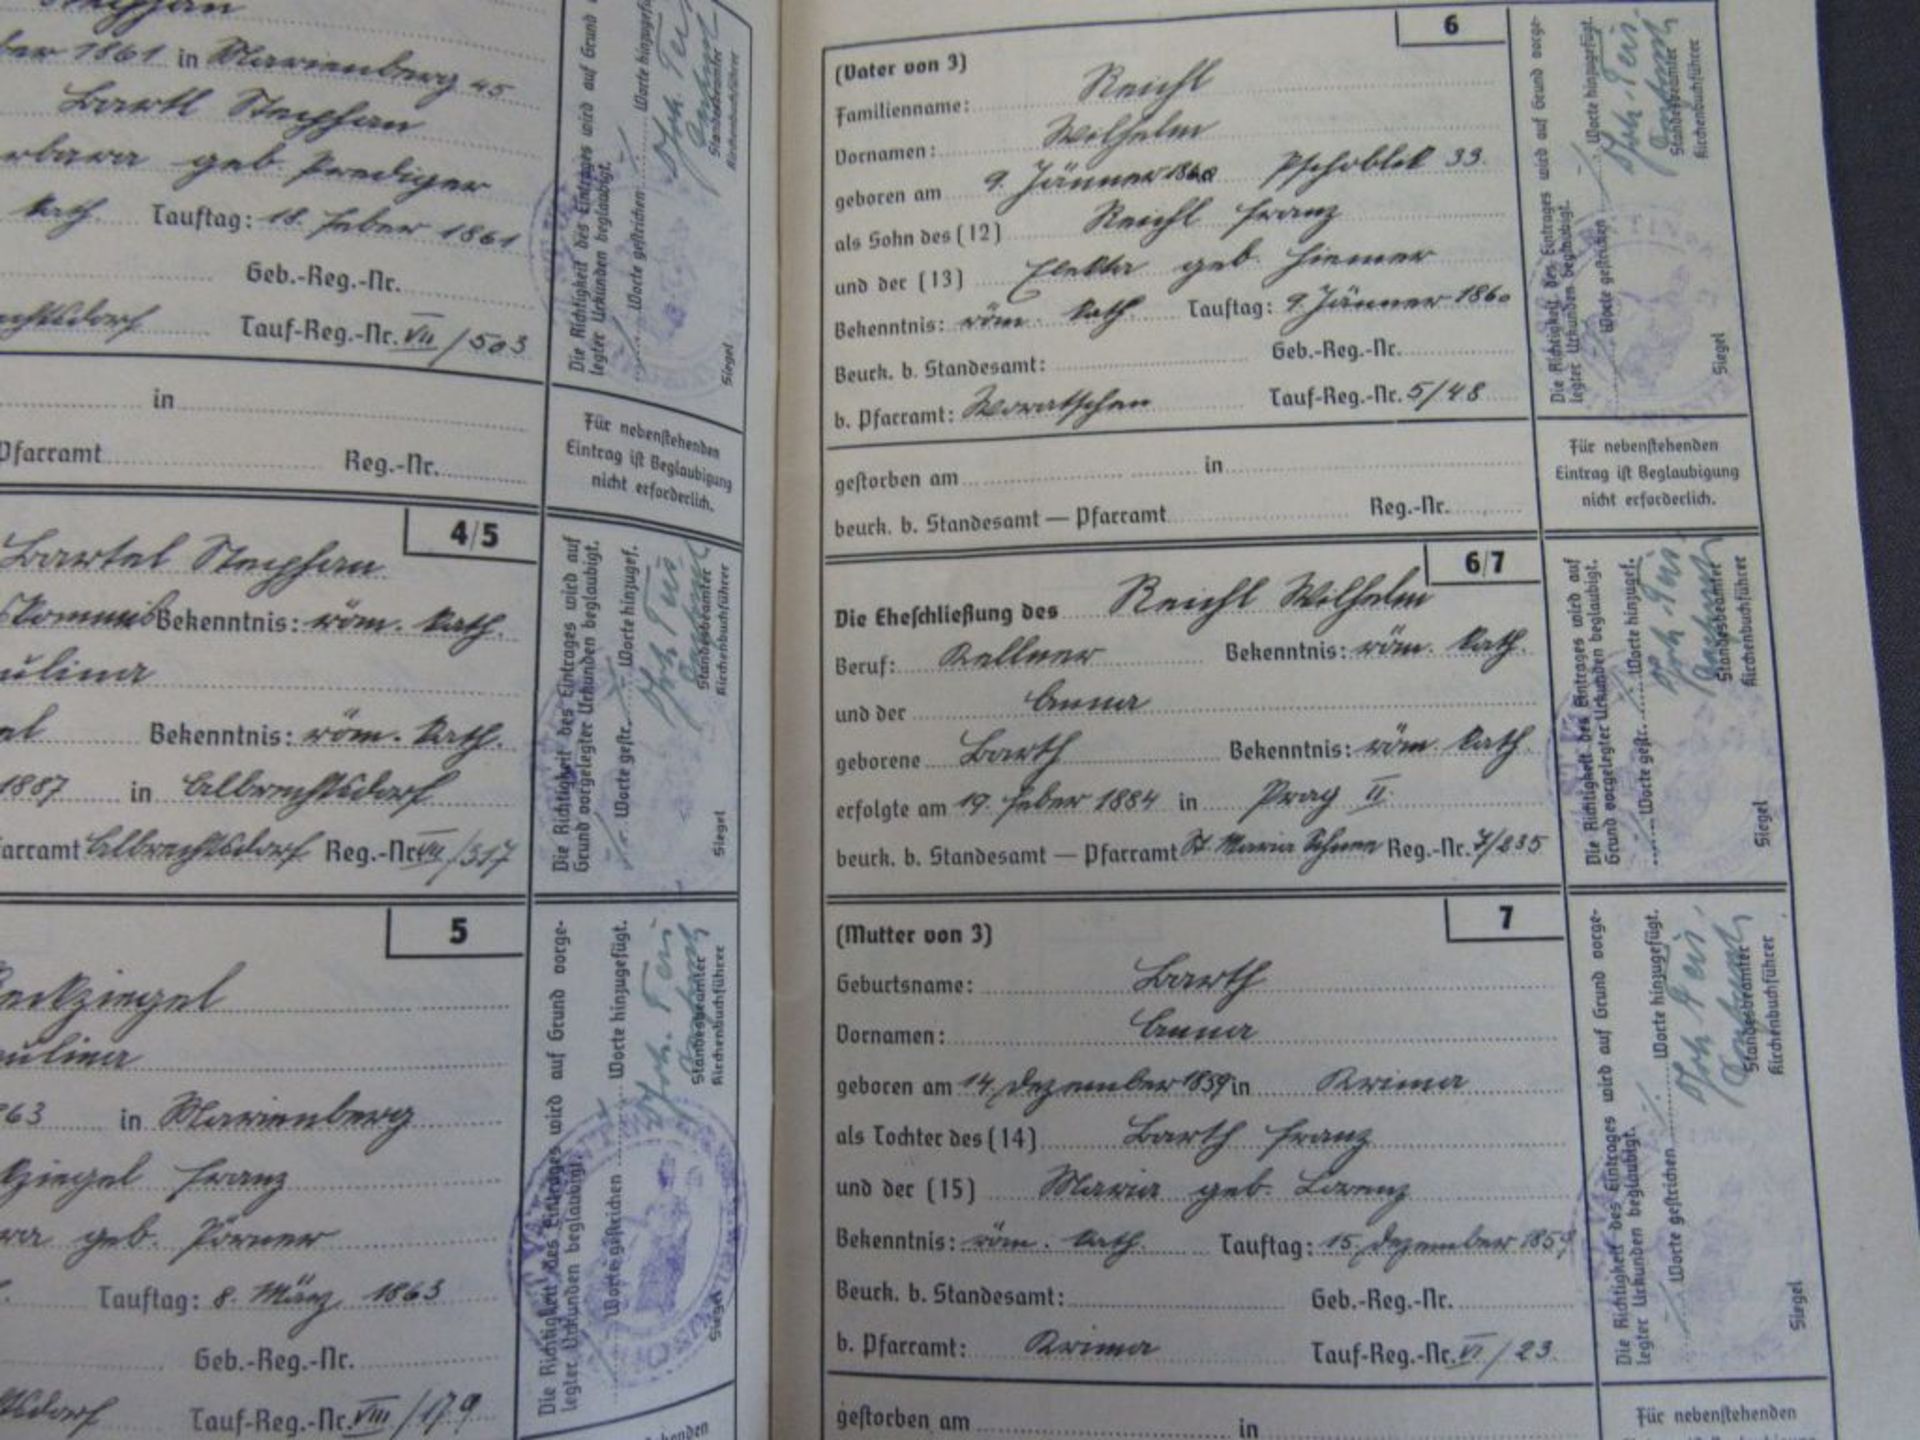 ber 1861 in Marienberg 45
Bartl Stephan
geb. Prediger
kath. Tauftag: 18. Feber 1861
Geb.-Reg.-Nr.
Tauf-Reg.-Nr. VII/503
in
Pfarramt Reg.-Nr.
4/5
Bartel Stephan
Bekenntnis: röm. kath.
ulina
Bekenntnis: röm. kath.
1887 in Albrechtsdorf
arramt Albrechtsdorf Reg.-Nr. VII/317
5
ulina
63 in Marienberg
kziegel Franz
ra geb. Pörner
Tauftag: 8. März 1863
Geb.-Reg.-Nr.
Tauf-Reg.-Nr. VIII/179
Die Richtigkeit des Eintrages wird auf Grund
legter Urkunden beglaubigt.
Worte gestrichen Worte hinzugefü
Standesbeamter
Kirchenbuchführer
Siegel
Für nebenstehenden
Eintrag ist Beglaubigung
nicht erforderlich.
Die Richtigkeit des Eintrages wird auf
Grund vorgelegter Urkunden beglaubigt.
Worte gestr. Worte hinzugef.
Standesbeamter
Kirchenbuchführer
Siegel
Die Richtigkeit des Eintrages wird auf Grund vorge-
legter Urkunden beglaubigt.
Worte gestrichen Worte hinzugefügt.
Standesbeamter
Kirchenbuchführer
Siegel
6
(Vater von 3)
Familienname: Reichl
Vornamen: Wilhelm
geboren am 9. Jänner 1860 Pschoblik 33.
als Sohn des (12) Reichl Franz
und der (13) Elekta geb. Hiemer
Bekenntnis: röm. kath. Tauftag: 9. Jänner 1860
Beurk. b. Standesamt: Geb.-Reg.-Nr.
b. Pfarramt: Woratschen Tauf-Reg.-Nr. 5/48
gestorben am in
beurk. b. Standesamt — Pfarramt Reg.-Nr.
6/7
Die Eheschließung des Reichl Wilhelm
Beruf: Kellner Bekenntnis: röm. kath.
und der Anna
geborene Barth Bekenntnis: röm. kath.
erfolgte am 19. Feber 1884 in Prag II.
beurk. b. Standesamt — Pfarramt St. Maria Schnee Reg.-Nr. 7/235
7
(Mutter von 3)
Geburtsname: Barth
Vornamen: Anna
geboren am 14. Dezember 1859 in Krima
als Tochter des (14) Barth Franz
und der (15) Maria geb. Lorenz
Bekenntnis: röm. kath. Tauftag: 15. Dezember 1859
Beurk. b. Standesamt: Geb.-Reg.-Nr.
b. Pfarramt: Krima Tauf-Reg.-Nr. VI/23.
gestorben am in
Die Richtigkeit des Eintrages wird auf Grund vorge-
legter Urkunden beglaubigt.
Worte gestrichen Worte hinzugefügt.
Standesbeamter
Kirchenbuchführer
Siegel
Für nebenstehenden
Eintrag ist Beglaubigung
nicht erforderlich.
Die Richtigkeit des Eintrages wird auf
Grund vorgelegter Urkunden beglaubigt.
Worte gestr. Worte hinzugef.
Standesbeamter
Kirchenbuchführer
Siegel
Die Richtigkeit des Eintrages wird auf Grund vorge-
legter Urkunden beglaubigt.
Worte gestrichen Worte hinzugefügt.
Standesbeamter
Kirchenbuchführer
Siegel
Für nebenstehenden